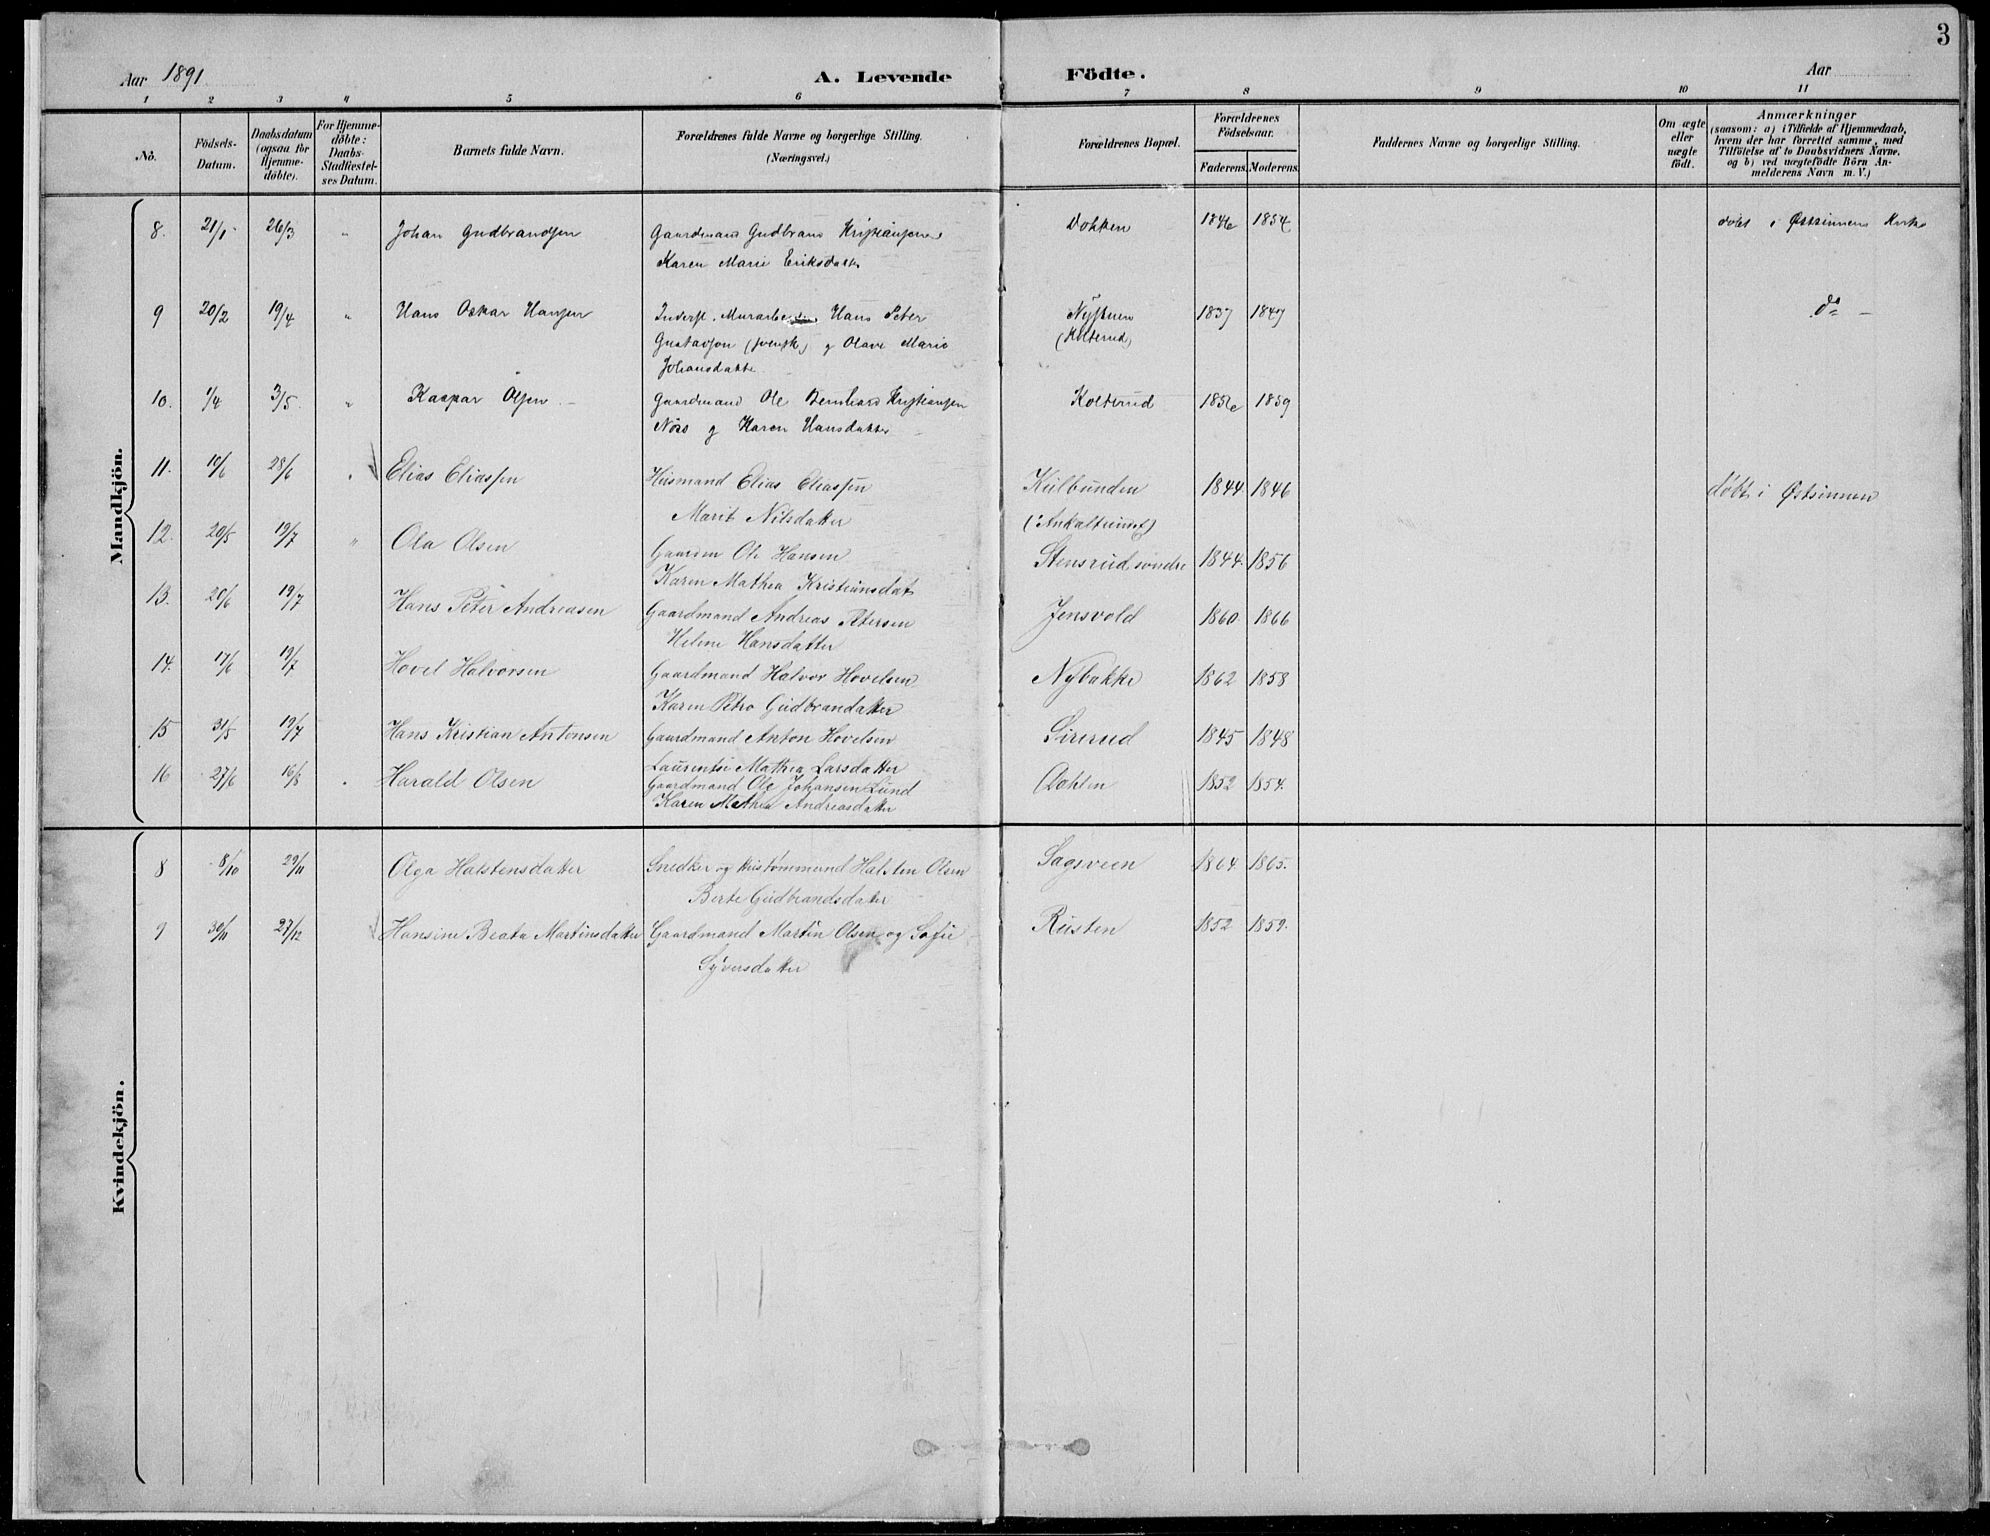 3
Aar 1891
A. Levende Födte.
Aar
1 2 3 4 5 6 7 8 9 10 11
No.
Födsels-
Datum.
Daabsdatum
(ogsaa for
Hjemme-
döbte).
For Hjemme-
döbte:
Daabs-
Stadfæstel-
ses Datum.
Barnets fulde Navn.
Forældrenes fulde Navne og borgerlige Stilling.
(Næringsvei.)
Forældrenes Bopæl.
Forældrenes
Födselsaar.
Faderens. Moderens.
Faddernes Navne og borgerlige Stilling.
Om ægte
eller
uægte
födt.
Anmærkninger
(saasom: a) i Tilfælde af Hjemmedaab,
hvem der har forrettet samme, med
Tilföielse af to Daabsvidners Navne,
og b) ved uægtefödte Börn An-
melderens Navn m. V.)
Mandkjön.
8. 21/1 26/3 " Johan Gudbrandsen Gaardmand Gudbrand Kristiansen Dokken 1846 1854 døbt i Østsinnen Kirke
Karen Marie Eriksdatter
9 20/2 19/4 " Hans Oskar Hansen Inderst. Hans Peter Nystuen 1837 1849 do
Gustavson (svensk) g Olave Marie (Kolterud)
Johansdatter
10. 1/4 3/5. " Kaspar Olsen Gaardmand Ole Bernhard Kristiansen Kolterud 1856 1859
g Karen Hansdatter
11. 10/6 28/6 " Elias Eliassen Husmand Elias Eliassen Kulbunden 1844. 1846 døbt i Østsinnen
Marit Nilsdatter
12. 20/5 19/7 " Ola Olsen Gaardm Ole Hansen Stensrud søndre 1844. 1856
Karen Mathea Kristiansdat
13. 20/6 19/7 Hans Peter Andreasen Gaardmand Andreas Petersen Jensvold 1860 1866
Helene Hansdatter
14. 17/6 19/7 Hovel Halvorsen Gaardmand Halvor Hovelsen Nybakke 1862 1858
Karen Petra Gudbrandatter
15 31/5 19/7 Hans Kristian Antonsen Gaardmand Anton Hovelsen Sirerud 1845 1848
Laurentse Mathea Larsdatter
16 27/6 16/8 " Harald Olsen Gaardmand Ole Johansen Lund Dahlen 1852 1854.
Karen Mathea Andreasdatter
Kvindekjön.
8 8/10 29/11 Olga Halstensdatter Snedker og Halsten Olsen Sagsveen 1864 1865.
Berte Gudbrandsdatter
9 30/11 27/12 Hansine Beata Martinsdatter Gaardmand Martin Olsen og Sofie Rusten 1852 1859.
Syversdatter